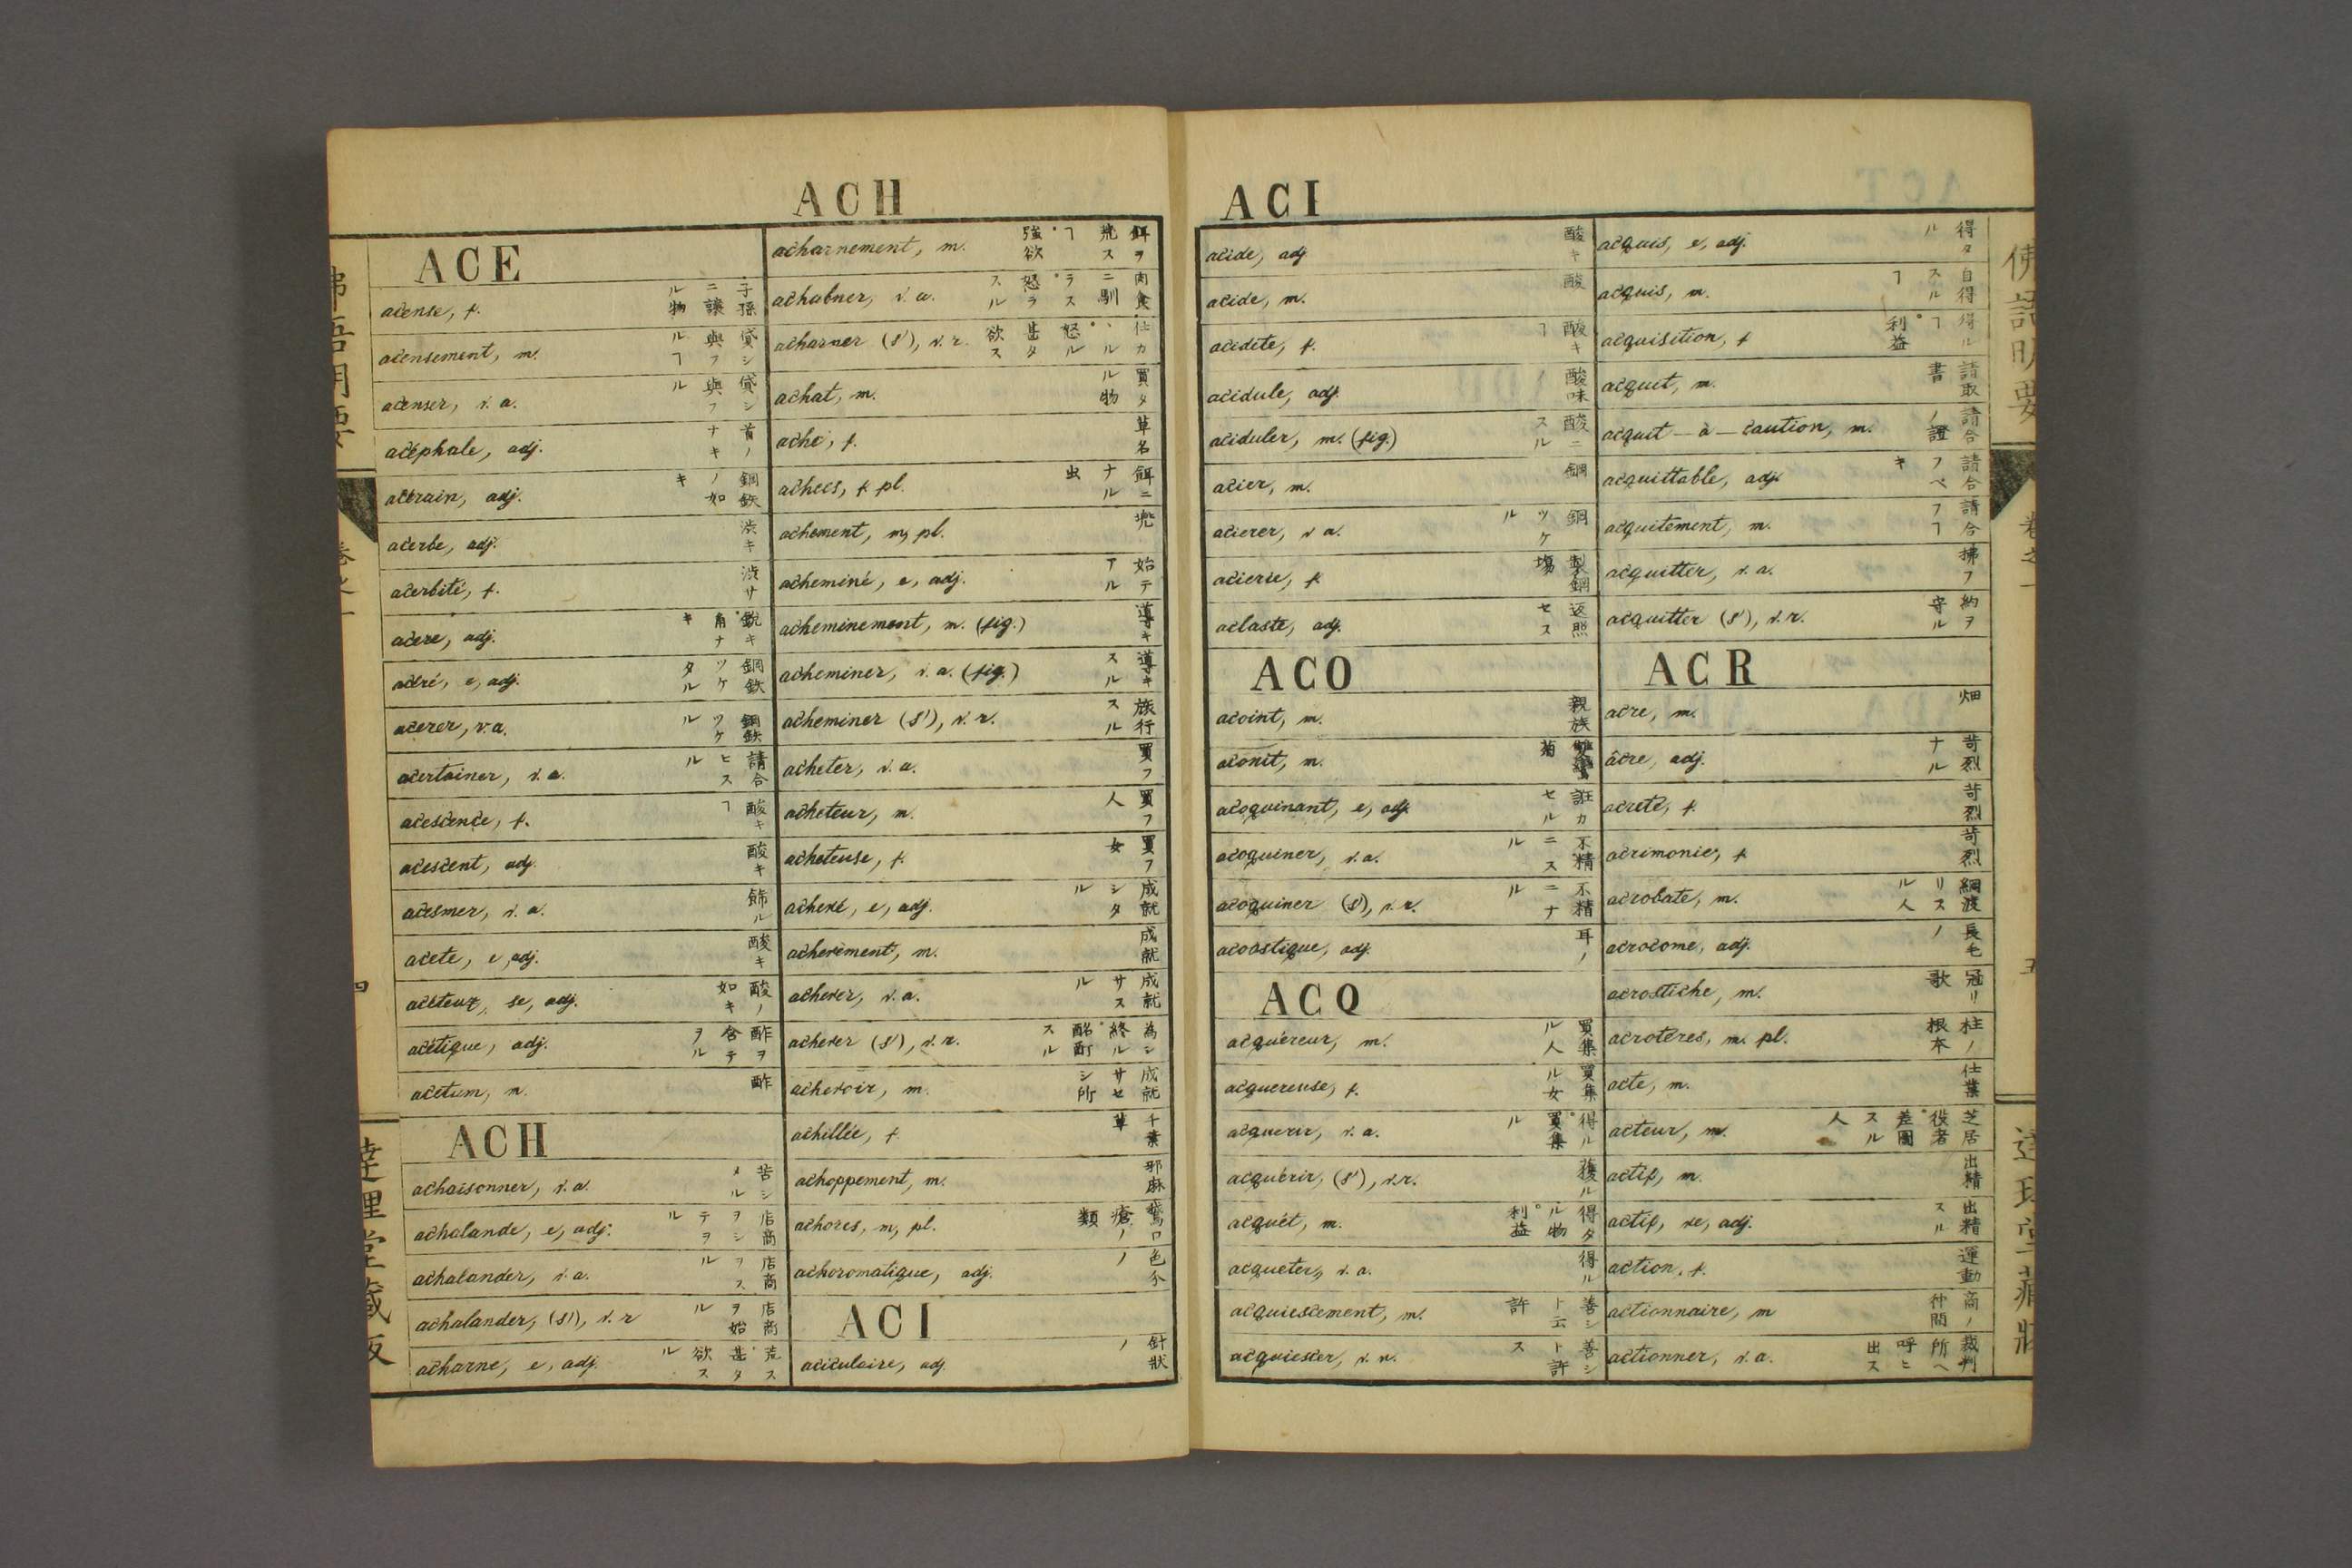 ACH
ACE
acense, f. 子孫ニ譲ル物
acensement, m. 貸シ與フルヿ
acenser, v. a. 貸シ與フル
acéphale, adj. 首ノナキ
acérain, adj. 鋼鉄ノ如キ
acerbe, adj. 渋キ
acerbité, f. 渋サ
acere, adj. 鋭キ。角ナキ
acéré, e, adj. 鋼鉄ツケタル
acerer, v. a. 鋼鉄ツケル
acertainer, v. a. 請合ヒスル
acescence, f. 酸キヿ
acescent, adj. 酸キ
acesmer, v. a. 飾ル
acete, e, adj. 酸キ
aceteux, se, adj. 酸ノ如キ
acétique, adj. 酢ヲ含テヲル
acetum, m. 酢
ACH
achaisonner, v. a. 苦シメル
achalande, e, adj. 店商ヲシテヲル
achalander, v. a. 店商ヲスル
achalander, (s'), v. r 店商ヲ始ル
acharne, e, adj. 荒ス。甚タ欲スル
acharnement, m. 餌ヲ荒スヿ。強欲
achabner, v. a. 肉食ニ馴ラス。怒ラスル
acharner (s'), v. r. 仕カヽル。怒ル甚タ欲ス
achat, m. 買タル物
ache, f. 草名
achées, f. pl. 餌ニナル虫
achement, m, pl. 兜
acheminé, e, adj. 始テアル
acheminement, m. (fig.) 導キ
acheminer, v. a. (fig.) 導キスル
acheminer (s'), v. r. 旅行スル
acheter, v. a. 買フ
acheteur, m. 買フ人
acheteuse, f. 買フ女
achevé, e, adj. 成就シタル
achevement, m. 成就
achever, v. a. 成就サスル
achever (s'), v. r. 為シ終ル。酩酊スル
achevoir, m. 成就サセシ所
achillée, f. 千葉草
achoppement, m. 邪麻
achores, m, pl. 鵞口瘡ノ類
achoromatique, adj. 色分ノ
ACI
aciculaire, adj. 針狀ノ
ACI
acide, adj 酸キ
acide, m. 酸
acidite, f. 酸キヿ
acidule, adj. 酸味
aciduler, m. (fig.) 酸ニスル
acier, m. 鋼
acierer, v a. 鋼ツケル
acierie, f. 製鋼場
aclaste, adj. 返照セス
ACO
acoint, m. 親族
aconit, m. 雙鸞菊
acoquinant, e, adj. 誑カセル
acoquiner, v. a. 不精ニスル
acoquiner (s'), v. r. 不精ニナル
acoustique, adj. 耳ノ
ACQ
acquéreur, m. 買集ル人
acquereuse, f. 買集ル女
acquerir, v. a. 得ル。買集ル
acquérir, (s'), v. r. 獲ル
acquét, m. 得タル物。利益
acqueter, v. a. 得ル
acquiescement, m. 善シト云許
acquiescer, v. n. 善シト許ス
acquis, e, adj. 得タル
acquis, m. 自得スルヿ
acquisition, f 得ルヿ。利益
acquit, m. 請取書
acquit-à-caution, m. 請合ノ證
acquittable, adj. 請合フベキ
acquitement, m. 請合フヿ
acquitter, v. a. 拂フ
acquitter (s'), v. r. 納ヲ守ル
ACR
acre, m. 畑
âcre, adj. 苛烈ナル
acreté, f. 苛烈
acrimonie, f 苛烈
acrobate, m. 綱渡リスル人
acrocome, adj. 長毛ノ
acrostiche, m. 冠リ歌
acrotères, m. pl. 柱ノ根本
acte, m. 仕業
acteur, m. 芝居役者。差圖スル人
actif, m. 出精
actif, ve, adj. 出精スル
action, f. 運動
actionnaire, m 商ノ仲間
actionner, v. a. 裁判所ヘ呼ヒ出ス
卷之一
四
五